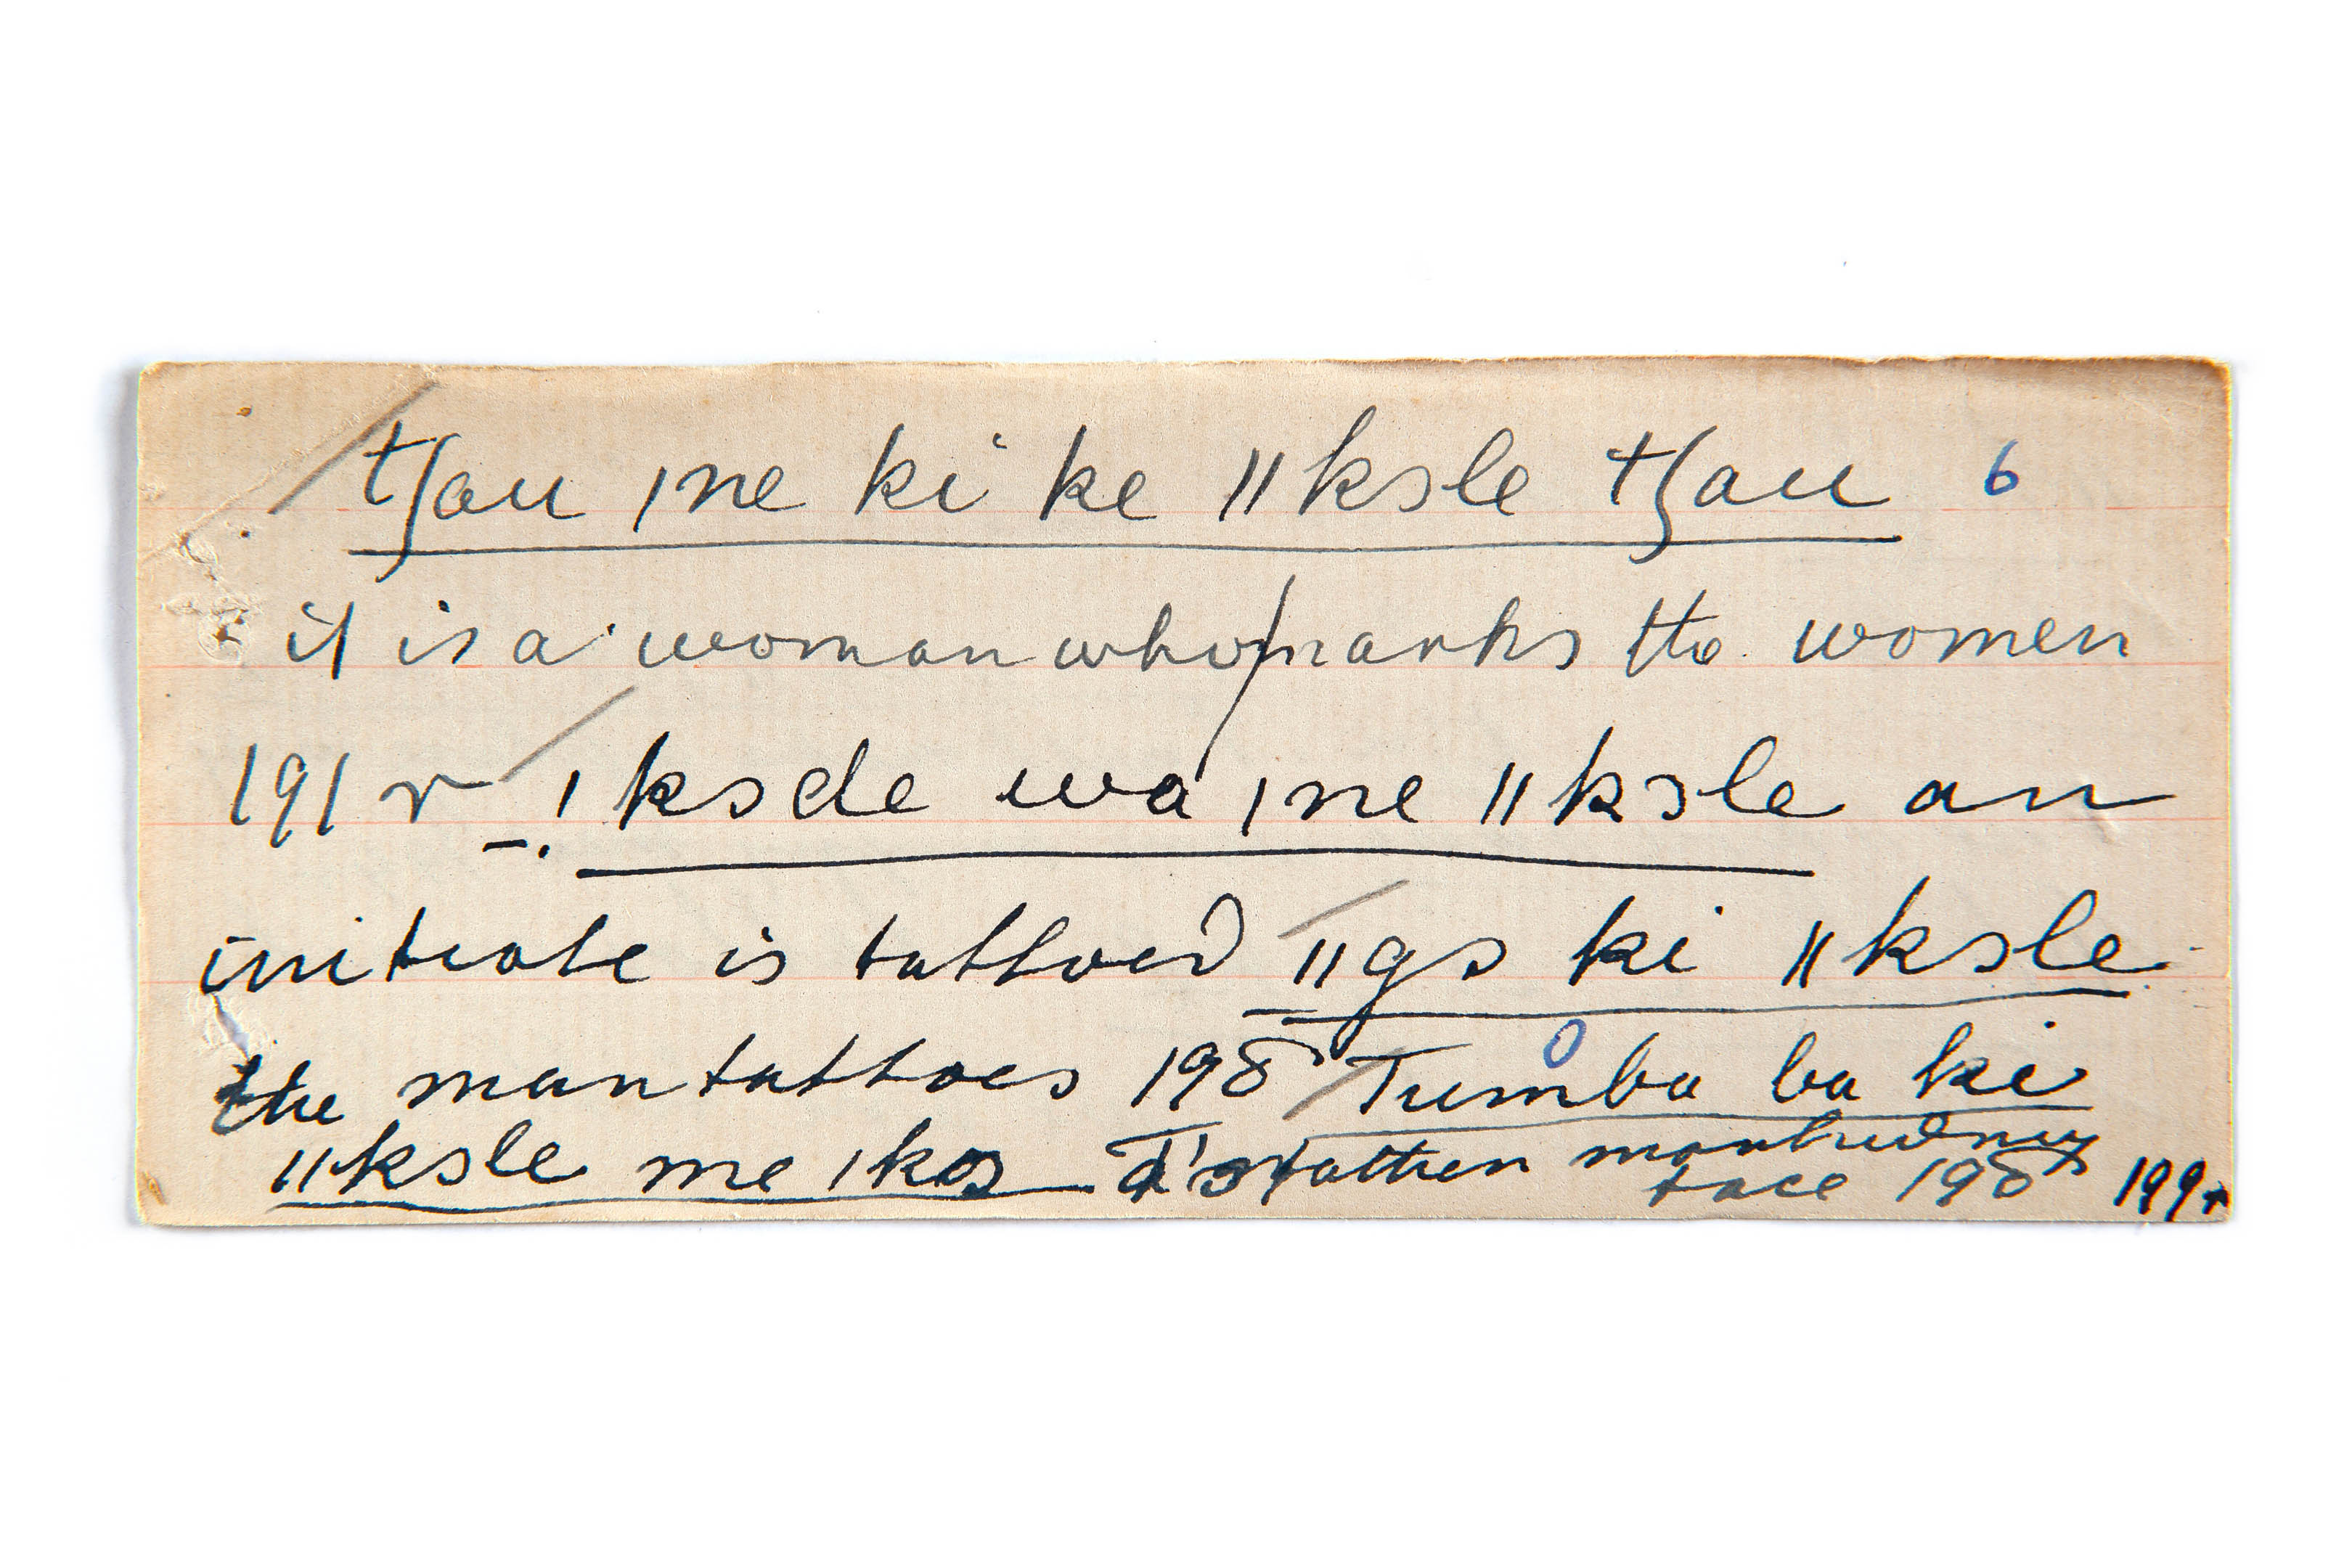 tʃau ǀne ki ke ǁkɔle tʃau 6
it is a woman who marks the women
191 r ǃkɔde wa ǀne ǁkɔle an
initiate is tattoed ǁgɔ ki ǁkɔle
the man tattoes 198 Tumba ba ki
ǁkɔle me ǀkɔ father
face 198 199